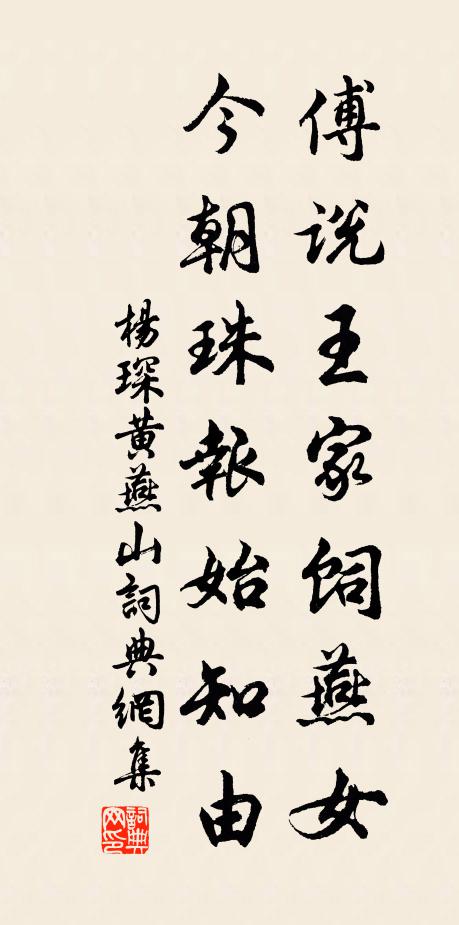 傅説王家飼燕女
今朝珠報始知由
楊琛黃燕山詞典網集
詞典网印